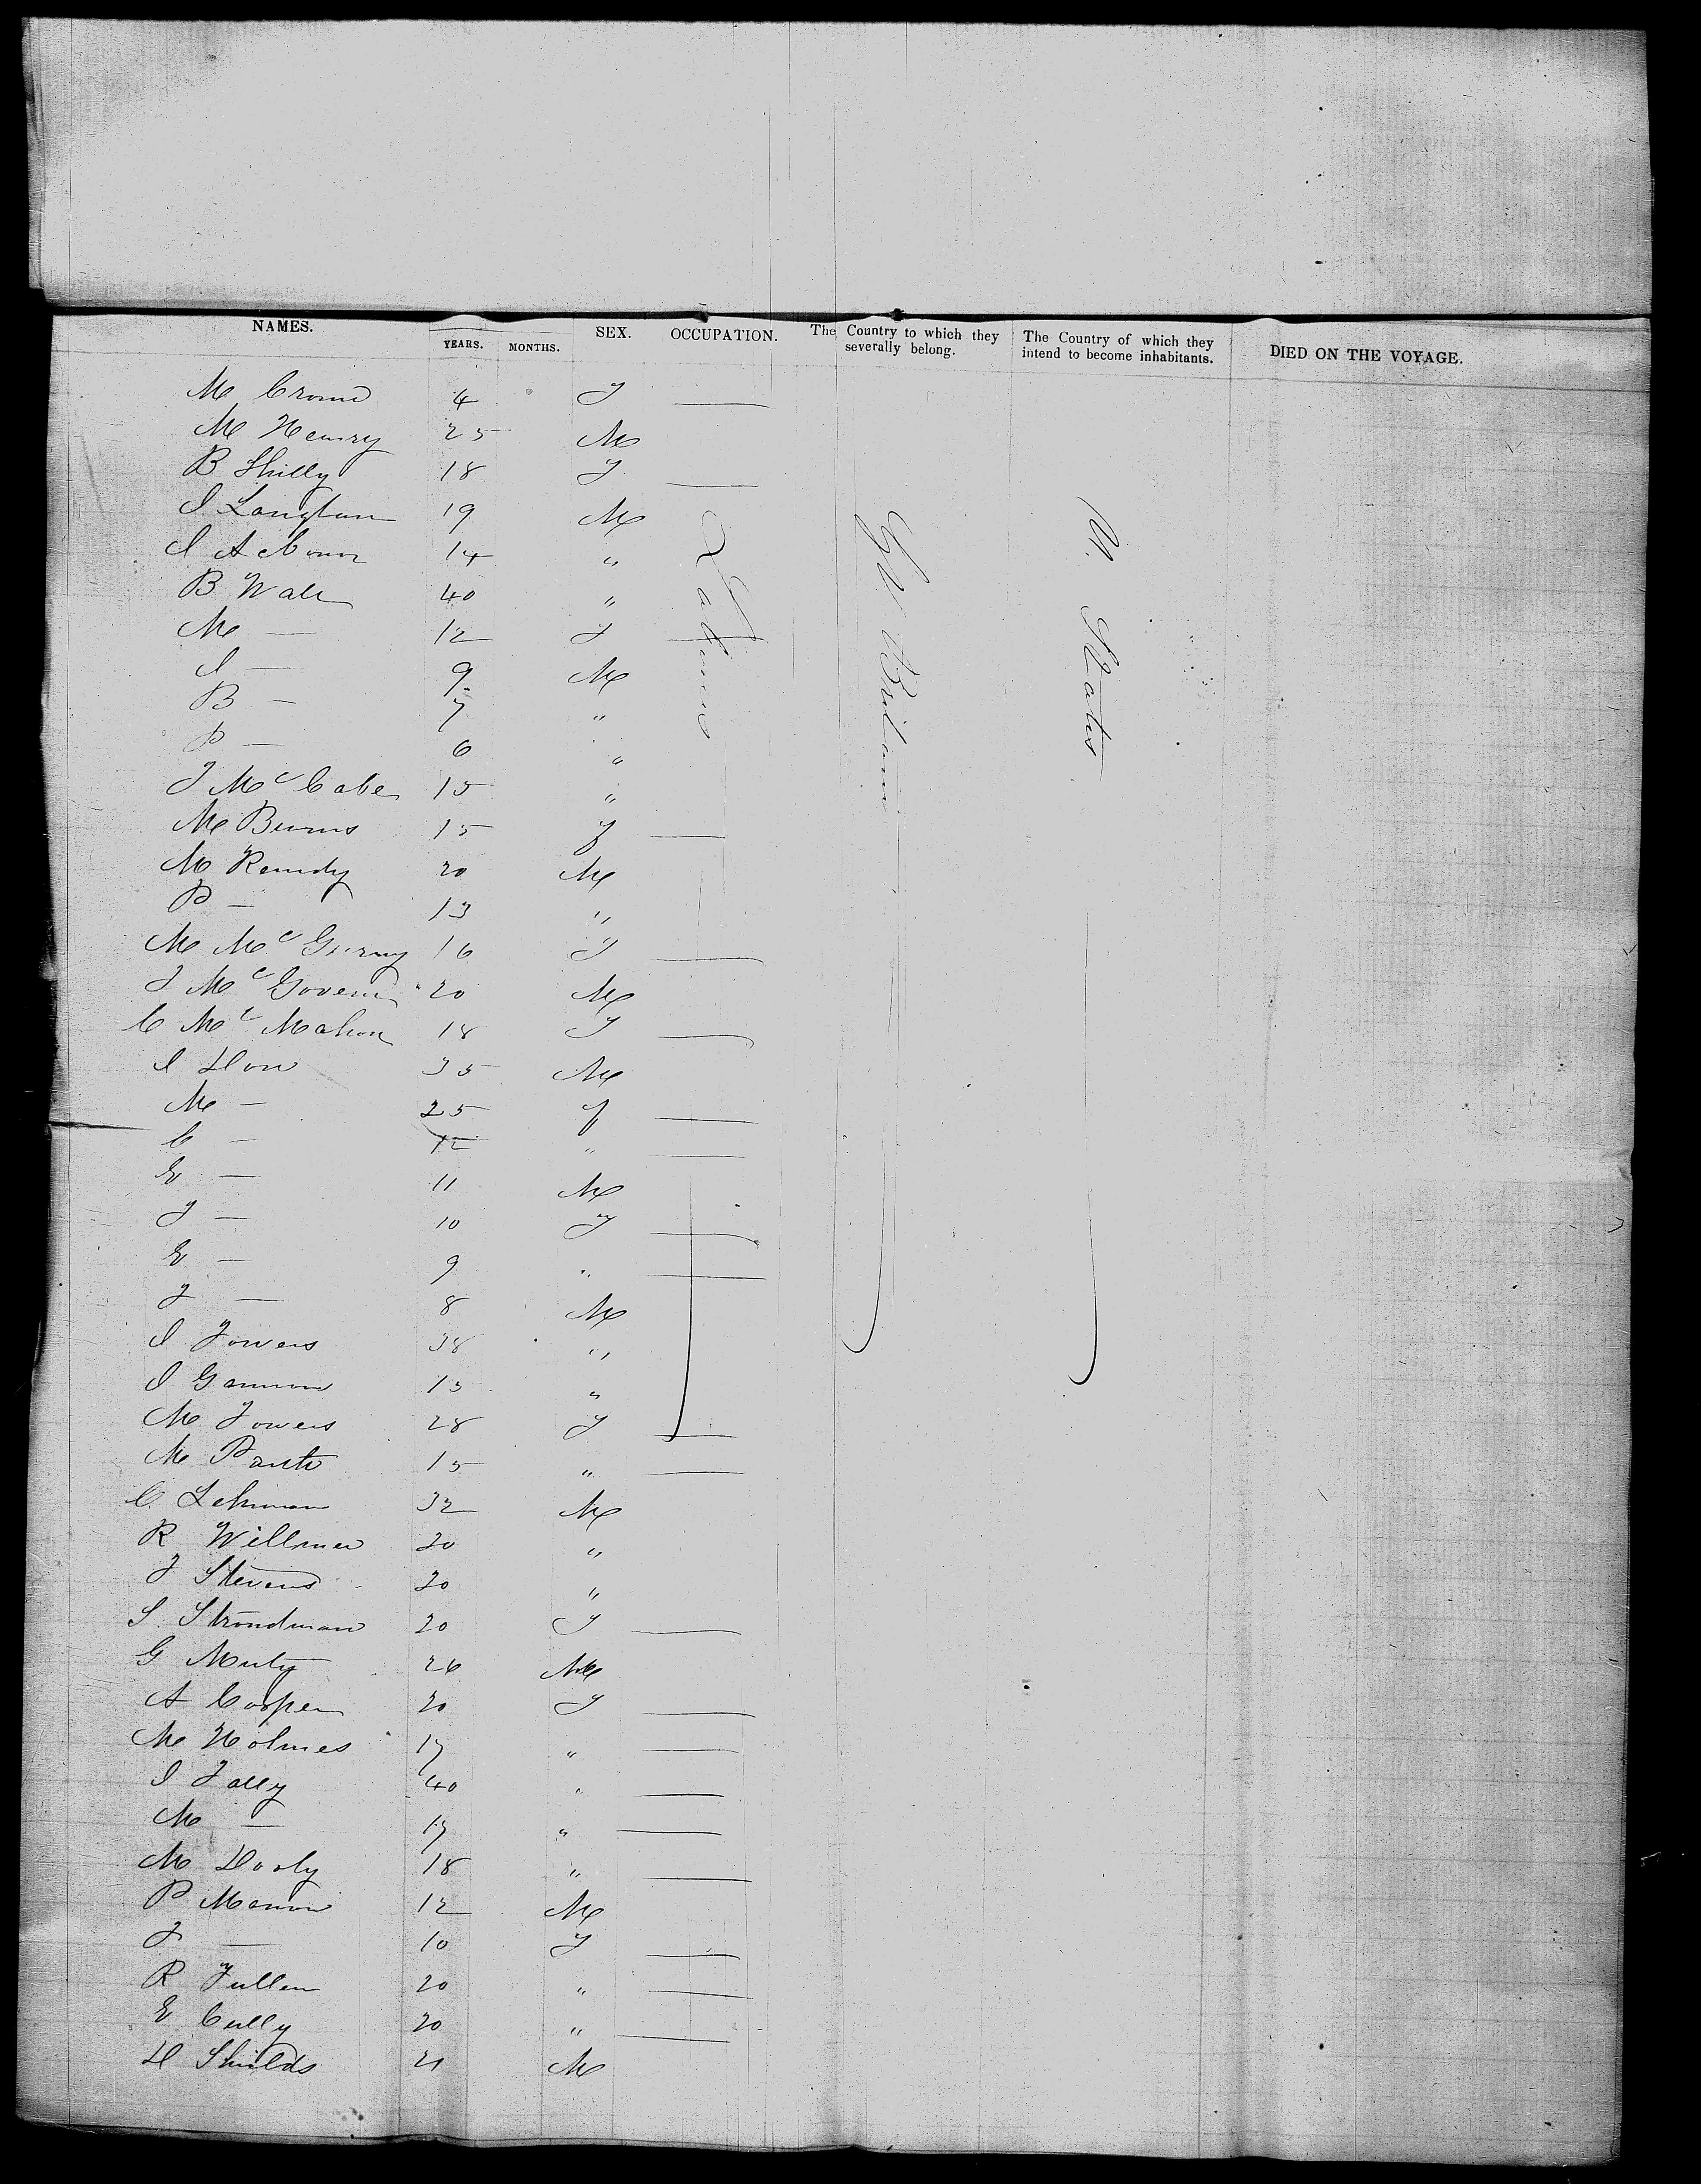 NAMES. YEARS. MONTHS. SEX. OCCUPATION. The Country to which they severally belong. The Country of which they intend to become inhabitants. DIED ON THE VOYAGE.
M 4 F —
M Henry 25 M
B Skilly 18 F —
J Langton 19 M
J 14 "
B Wall 40 "
M — 12 F —
J — 9 M
B — 7 "
P — 6 "
J Mc Cabe 15 "
M Burns 15 F —
M Kennedy 20 M
P — 13 "
M Mc 16 F —
J Mc Govern 20 M
C Mc Mahon 18 F —
J Dow 35 M
M — 25 F —
C — 12 " —
E — 11 M
J — 10 F —
E — 9 " —
J — 8 M
J Towers 38 "
J Gannon 15 "
M Towers 28 F —
M 15 " —
C Lehman 32 M
R Willmer 20 "
J Stevens 20 "
S. Strondman 20 F —
G 26 M
A Cooper 20 F —
M Holmes 17 " —
J Fally 40 " —
M — 17 " —
M 18 " —
P Mannon 12 M
J — 10 F —
R Fullen 20 " —
E Cully 20 " —
D Shields 21 M
Labourers
Gt Britain
U. States